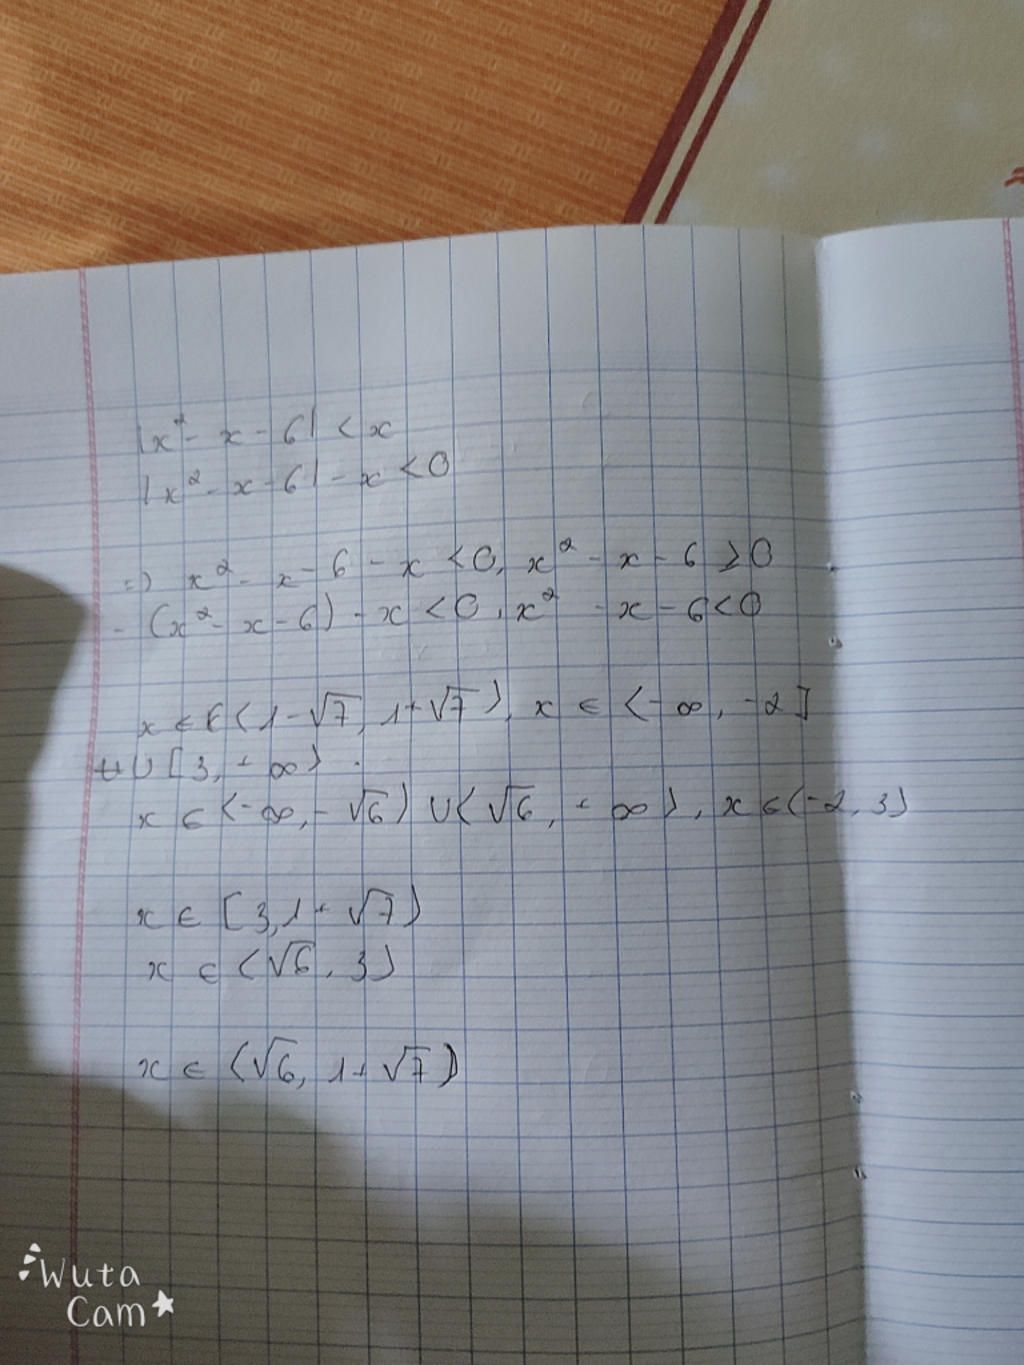 |x² - x - 6| < x
|x² - x - 6| - x < 0
=> x² - x - 6 - x < 0, x² - x - 6 ≥ 0
- (x² - x - 6) - x < 0, x² - x - 6 < 0
x ∈ (1 - √7, 1 + √7), x ∈ (-∞, -2]
U [3, +∞) .
x ∈ (-∞, -√6) U (√6, +∞), x ∈ (-2, 3)
x ∈ [3, 1 + √7)
x ∈ (√6, 3)
x ∈ (√6, 1 + √7)
Wuta
Cam